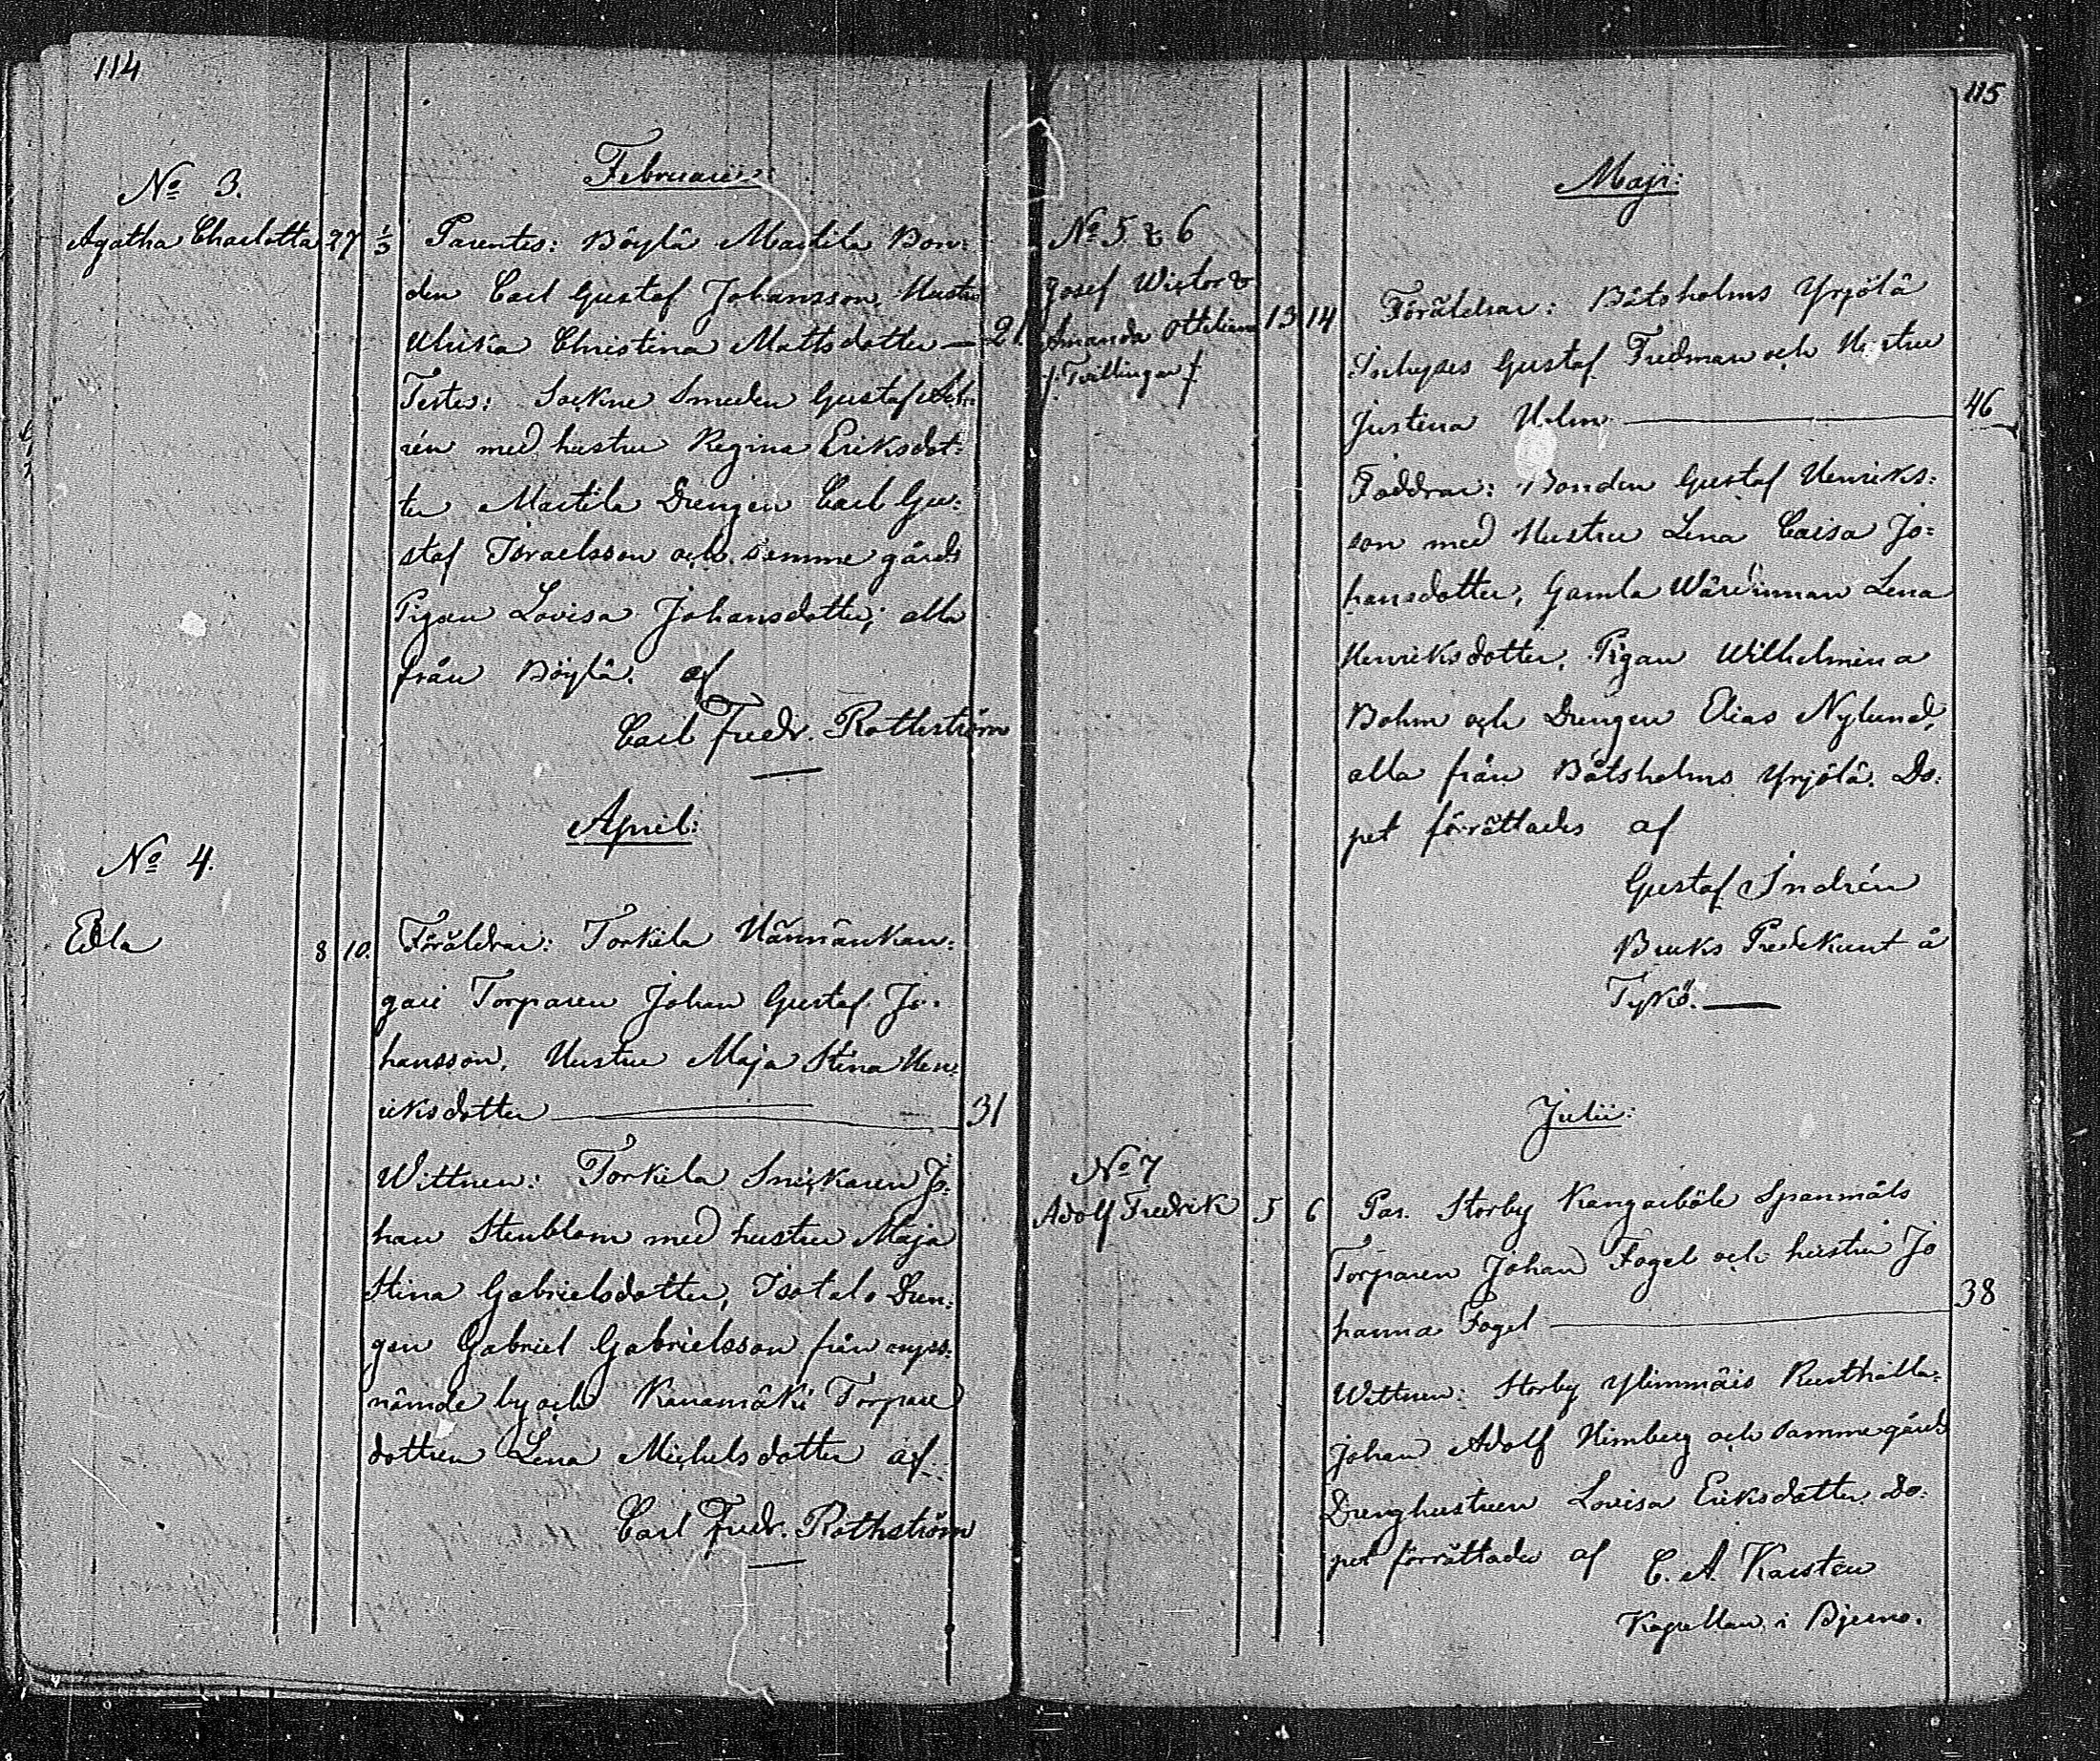 114
Februarii
No 3.
Agatha Charlotta 27 1/3 Parentes: Böylä Martila Bon=
den Carl Gustaf Johansson Hustru
Ulrika Christina Mattsdotter — 21
Testes: Sockne Smeden Gustaf
rén med hustru Regina Eriksdot=
ter Martila Drengen Carl Gu=
staf Israelsson och samme gårds
Pigan Lovisa Johansdotter; alla
från Böylä. af
Carl Fredr. Rothström
April:
No 4.
Edla 8 10. Föräldrar: Torkila Hännänkan=
gari Torparen Johan Gustaf Jo=
hansson, Hustru Maja Stina Hen=
riksdotter — 31
Wittnen: Torkila Snickaren Jo=
han Stenblom med hustru Maja
Stina Gabrielsdotter, Isotalo Dren=
gen Gabriel Gabrielsson från
nämde by och Kanamäki Torpare
dottren Lena Michelsdotter af
Carl Fredr. Rothström
115
Maji:
No 5 & 6
Josef Wictor &
Amanda Ottiliana 13 14 Föräldrar: Båtsholms Yrjölä
/: Twillingar :/
Inhyses Gustaf Fredman och Hustru
Justina Holm — 46
Faddrar: Bonden Gustaf Henriks=
son med Hustru Lena Caisa Jo=
hansdotter, Gamla Wärdinnan Lena
Henriksdotter, Pigan Wilhelmina
Bohm och Drengen Elias Nylund,
alla från Båtsholms Yrjölä. Do=
pet förrättades af
Gustaf Indrén
Bruks Predikant å
Tykö. —
Julii:
No 7
Adolf Fredrik 5 6 Par. Storby Kangarböle Spanmåls
Torparen Johan Fogel och hustru Jo
hanna Fogel — 38
Wittnen: Storby Ylimmäis Rusthålla=
Johan Adolf Himberg och samme gårds
Dränghustrun Lovisa Eriksdotter. Do=
pet förrättade af C. A. Karsten
Kapellan i Bjerno.